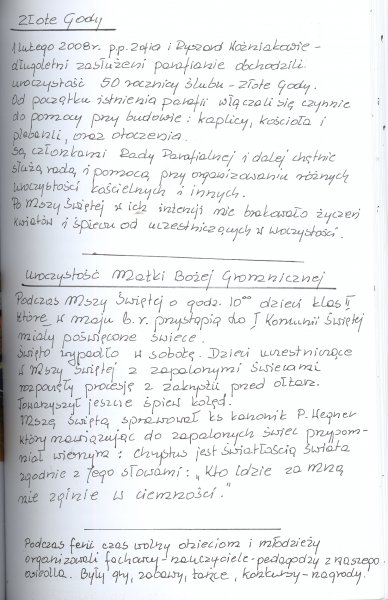 Złote Gody
1 lutego 2008 r. p.p. Zofia i Ryszard Woźniakowie -
długoletni zasłużeni parafianie obchodzili
uroczystość 50 rocznicy ślubu - Złote Gody.
Od początku istnienia parafii włączali się czynnie
do pomocy przy budowie : kaplicy, kościoła i
plebanii, oraz otoczenia.
Są członkami Rady Parafialnej i dalej chętnie
służą radą i pomocą przy organizowaniu różnych
uroczystości kościelnych i innych.
Po Mszy Świętej w ich intencji nie brakowało życzeń
kwiatów i śpiewu od uczestniczących w uroczystości.
Uroczystość Matki Bożej Gromnicznej
Podczas Mszy Świętej o godz. 10⁰⁰ dzieci klas II
które w maju b.r. przystąpią do I Komunii Świętej
miały poświęcone świece.
Święto wypadło w sobotę. Dzieci uczestniczące
w Mszy Świętej z zapalonymi świecami
rozpoczęły procesję z zakrystii przed ołtarz.
Towarzyszył jeszcze śpiew kolęd.
Mszę Świętą sprawował ks kanonik P. Wegner
który nawiązując do zapalonych świec przypom-
niał wiernym : Chrystus jest Światłością świata
zgodnie z Jego słowami : „Kto idzie za Mną
nie zginie w ciemności."
Podczas ferii czas wolny dzieciom i młodzieży
organizowali fachowcy - nauczyciele - pedagodzy z naszego
osiedla. Były gry, zabawy, tańce, konkursy - nagrody.